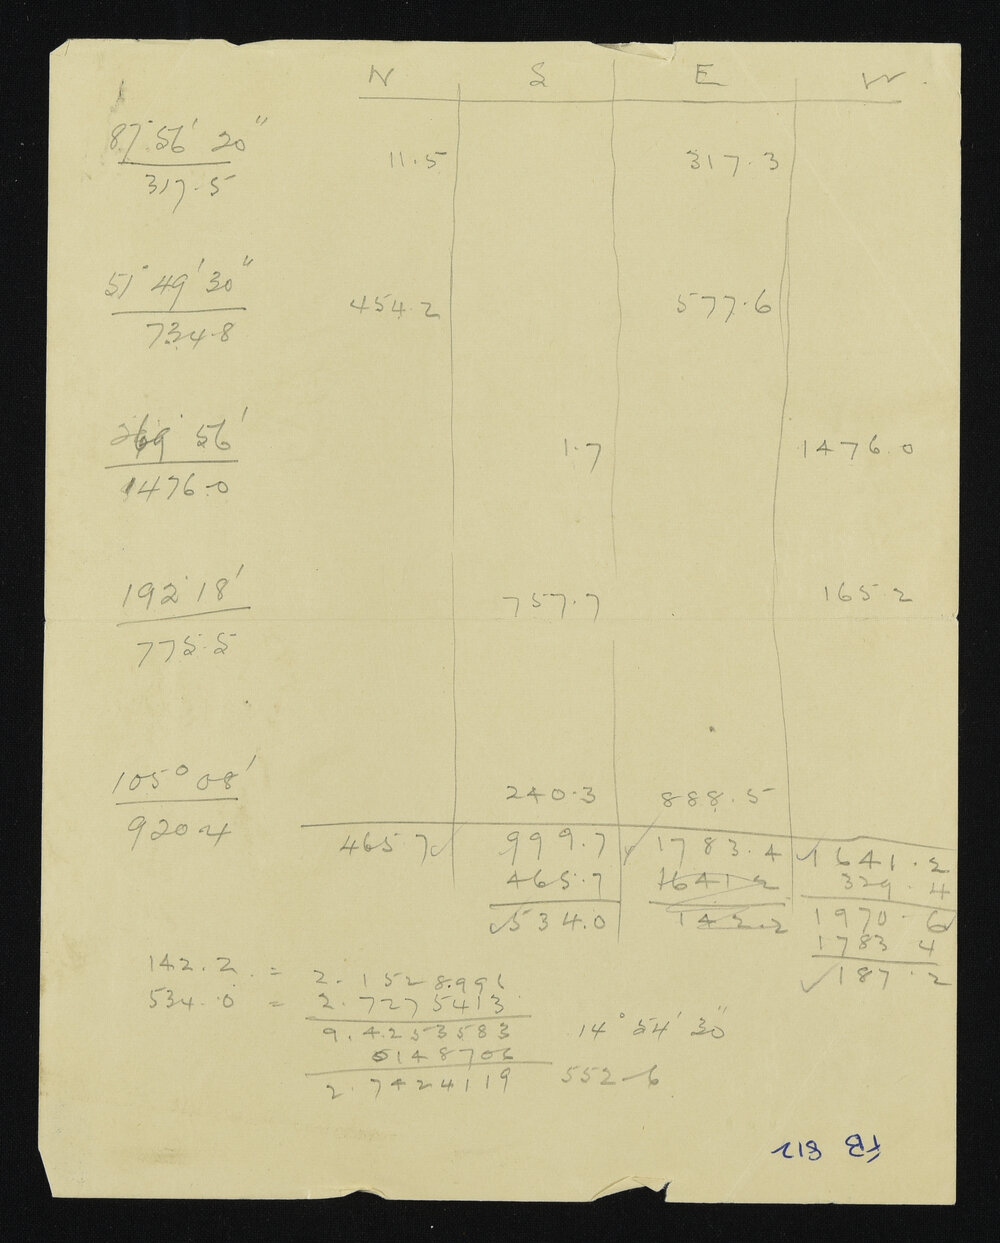 N S E W
87° 56' 20"
11.5 317.3
317.5
51° 49' 30"
454.2 577.6
734.8
269° 56'
1.7 1476.0
1476.0
192° 18'
757.7 165.2
775.5
105° 08'
240.3 888.5
920.4
465.7 999.7 1783.4 1641.2
465.7 1641.2 329.4
534.0 142.2 1970.6
1783.4
187.2
142.2 = 2.1528996
534.0 = 2.7275413
9.4253583 14° 54' 30"
0148706
2.7424119 552.6
FB 812